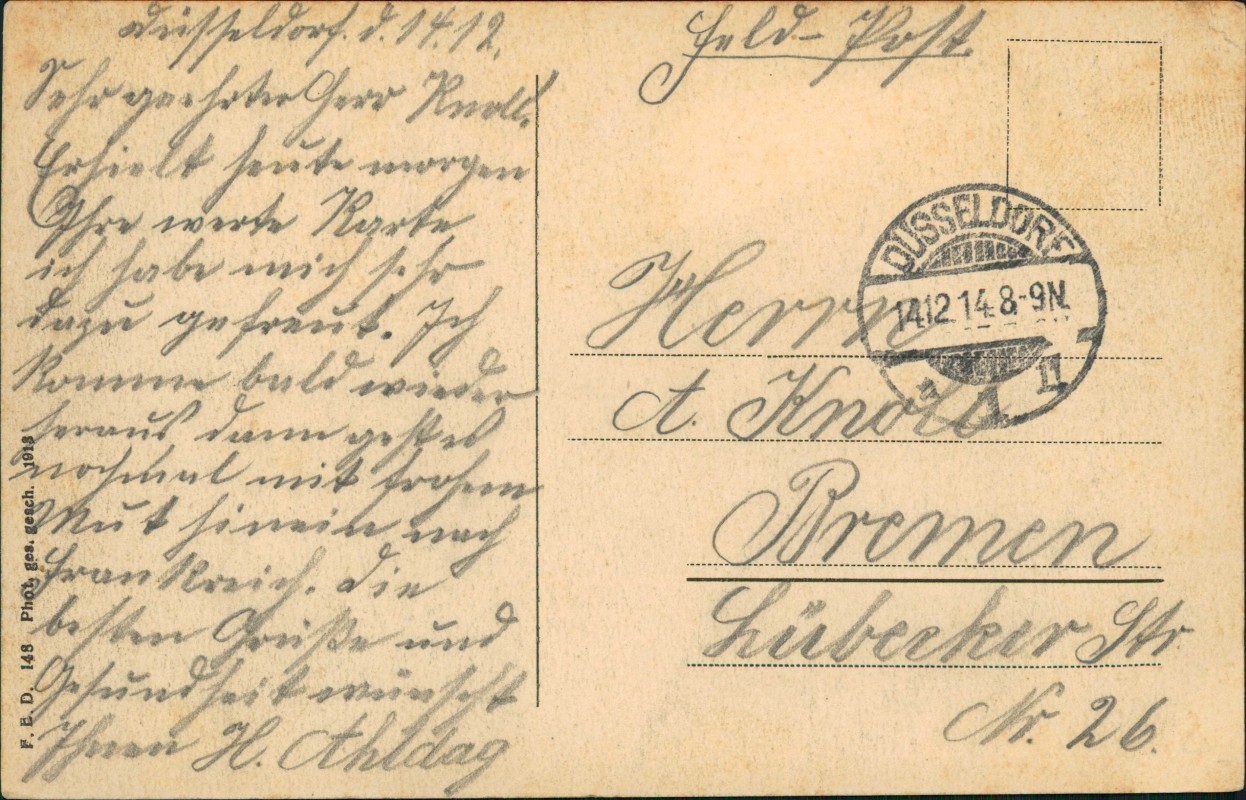 Düsseldorf. d. 14.12.
Sehr geehrter Herr Knoll.
Erhielt heute morgen
Ihre werte Karte
ich habe mich sehr
dazu gefreut. Ich
komme bald wieder
heraus, dann geht es
nochmal mit frohem
Mut hinein nach
Frankreich. Die
besten Grüße und
Gesundheit wünscht
Ihnen H. Ahldag
F. E. D. 148 Phot. ges. gesch. 1913
Feld-Post.
DÜSSELDORF
14.12.14.8-9N.
* 1 II
Herrn
A. Knoll
Bremen
Lübecker Str.
Nr. 26.